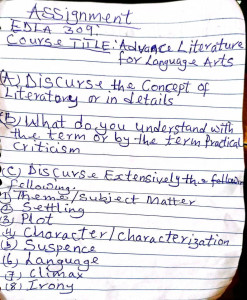 Assignment
EDLA 309:
Course TITLE: Advance Literature
for Language Arts
(A) Discurse the Concept of
Literatory or in details
(B) What do you understand with
the term or by the term Practical
Criticism
(C) Discurse Extensively the following
following.
(1) theme/subject Matter
(2) Settling
(3) Plot
(4) Character/characterization
(5) Suspence
(6) Language
(7) Climax
(8) Irony